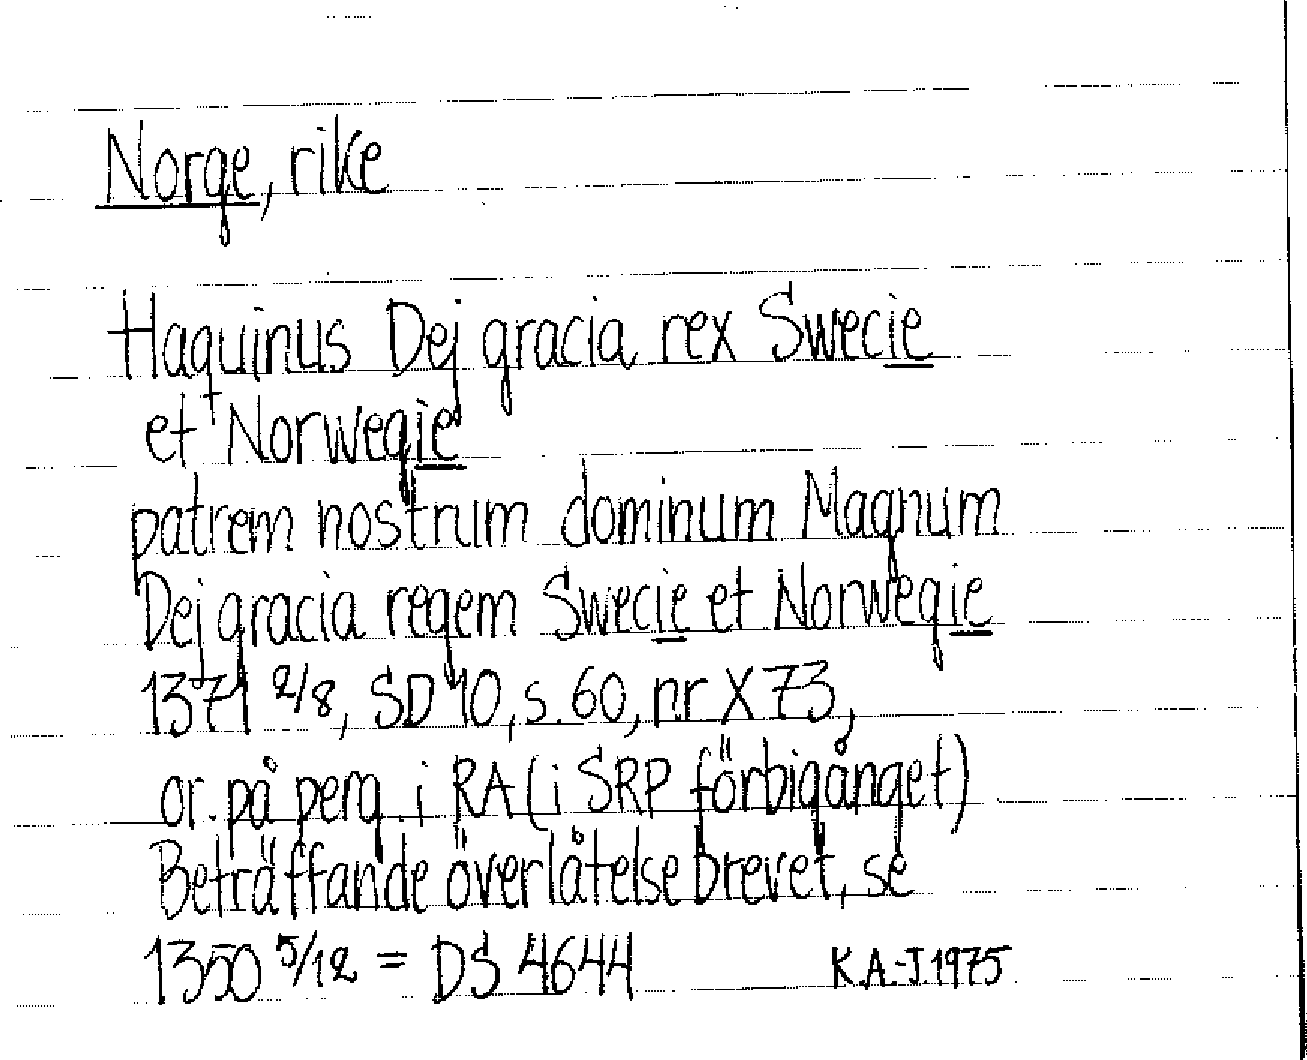 Norge, rike
Haquinus Dej gracia rex Swecie
et Norwegie
patrem nostrum dominum Magnum
Dej gracia regem Swecie et Norwegie
1371 2/8, SD 10, s. 60, nr X 73,
or. på perg. i RA (i SRP förbigånget)
Beträffande överlåtelsebrevet, se
1350 5/12 = DS 4644 K.A.-J. 1975